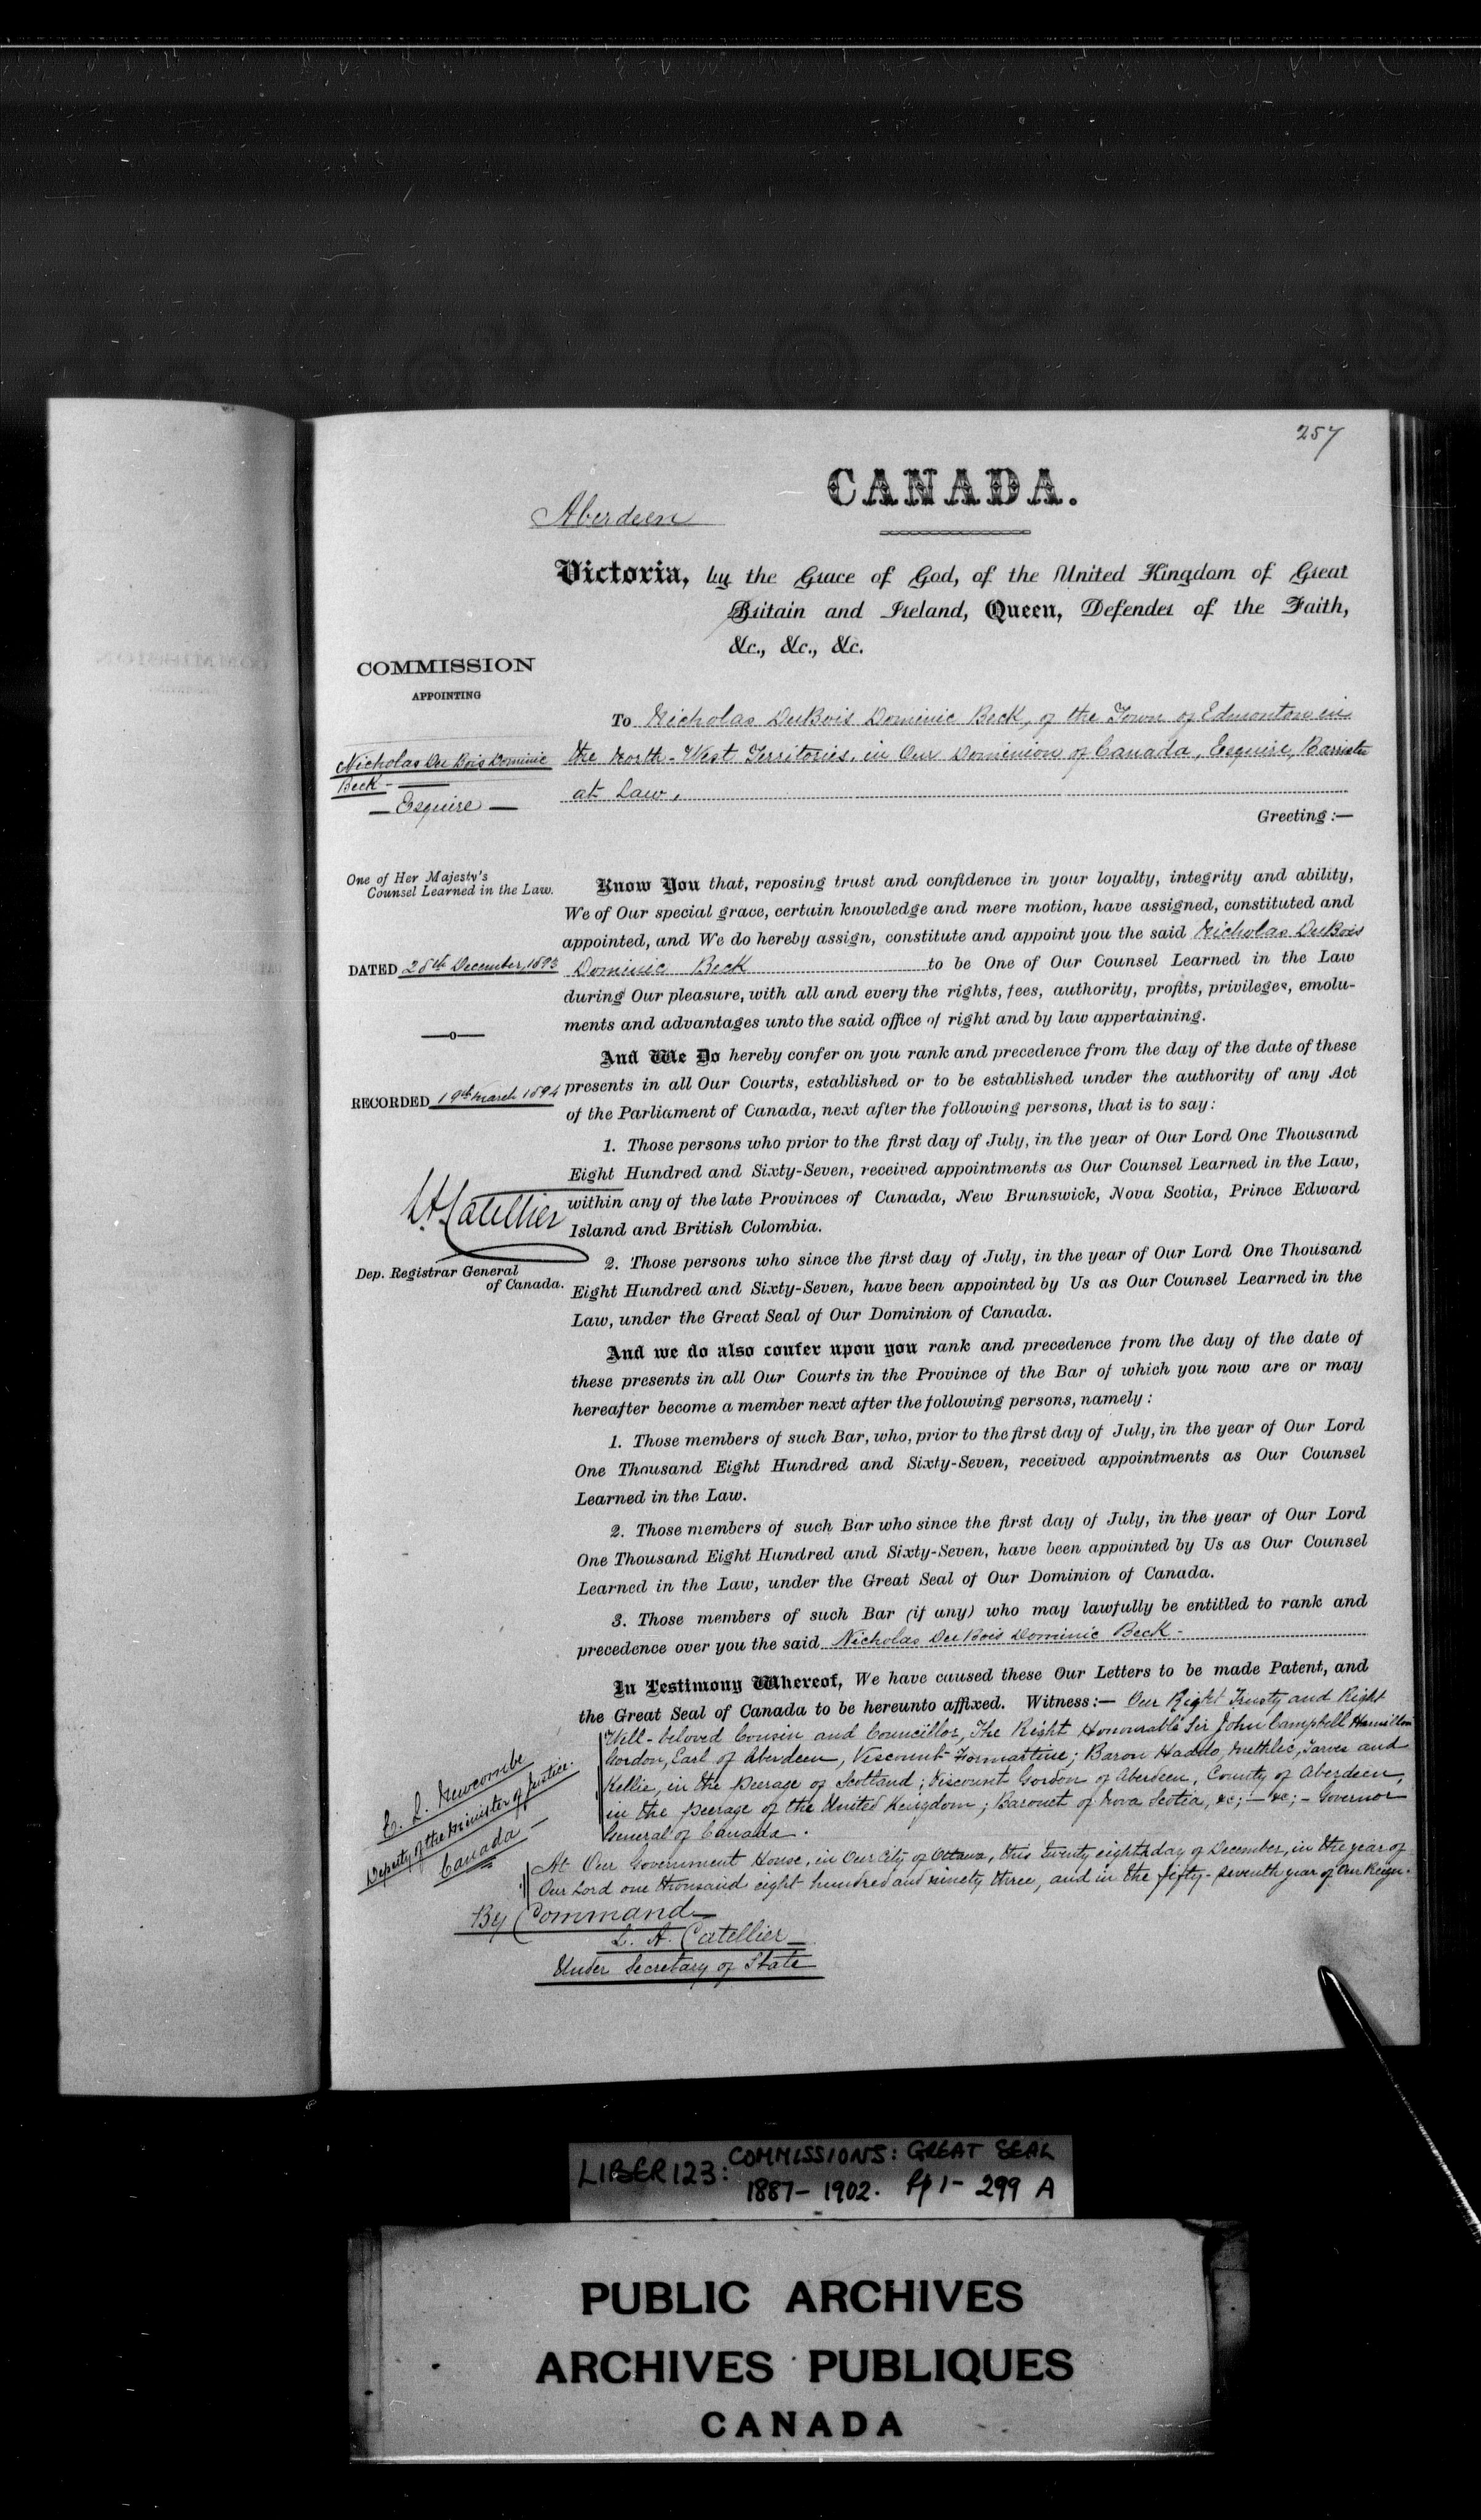 257
CANADA.
Aberdeen
Victoria, by the Grace of God, of the United Kingdom of Great
Britain and Ireland, Queen, Defender of the Faith,
&c., &c., &c.
COMMISSION
APPOINTING
Nicholas Du Bois Dominic
Beck
— Esquire —
One of Her Majesty's
Counsel Learned in the Law.
DATED 28th December, 1893
—o—
RECORDED 19th March 1894
L. A. Catellier
Dep. Registrar General
of Canada.
To Nicholas DuBois Dominic Beck, of the Town of Edmonton in
the North-West Territories, in Our Dominion of Canada, Esquire, Barrister
at Law,
Greeting :—
Know You that, reposing trust and confidence in your loyalty, integrity and ability,
We of Our special grace, certain knowledge and mere motion, have assigned, constituted and
appointed, and We do hereby assign, constitute and appoint you the said Nicholas DuBois
Dominic Beck to be One of Our Counsel Learned in the Law
during Our pleasure, with all and every the rights, fees, authority, profits, privileges, emolu-
ments and advantages unto the said office of right and by law appertaining.
And We Do hereby confer on you rank and precedence from the day of the date of these
presents in all Our Courts, established or to be established under the authority of any Act
of the Parliament of Canada, next after the following persons, that is to say:
1. Those persons who prior to the first day of July, in the year of Our Lord One Thousand
Eight Hundred and Sixty-Seven, received appointments as Our Counsel Learned in the Law,
within any of the late Provinces of Canada, New Brunswick, Nova Scotia, Prince Edward
Island and British Colombia.
2. Those persons who since the first day of July, in the year of Our Lord One Thousand
Eight Hundred and Sixty-Seven, have been appointed by Us as Our Counsel Learned in the
Law, under the Great Seal of Our Dominion of Canada.
And we do also confer upon you rank and precedence from the day of the date of
these presents in all Our Courts in the Province of the Bar of which you now are or may
hereafter become a member next after the following persons, namely :
1. Those members of such Bar, who, prior to the first day of July, in the year of Our Lord
One Thousand Eight Hundred and Sixty-Seven, received appointments as Our Counsel
Learned in the Law.
2. Those members of such Bar who since the first day of July, in the year of Our Lord
One Thousand Eight Hundred and Sixty-Seven, have been appointed by Us as Our Counsel
Learned in the Law, under the Great Seal of Our Dominion of Canada.
3. Those members of such Bar (if any) who may lawfully be entitled to rank and
precedence over you the said Nicholas Du Bois Dominic Beck -
In Testimony Whereof, We have caused these Our Letters to be made Patent, and
the Great Seal of Canada to be hereunto affixed. Witness:— Our Right Trusty and Right
Well-beloved Cousin and Councillor, The Right Honourable Sir John Campbell Hamilton
Gordon, Earl of Aberdeen, Viscount Formartine; Baron Haddo, Methlic, Tarves and
Kellie, in the Peerage of Scotland; Viscount Gordon of Aberdeen, County of Aberdeen,
in the peerage of the United Kingdom; Baronet of Nova Scotia, &c; — &c; - Governor
General of Canada.
At Our Government House, in Our City of Ottawa, this twenty eighth day of December, in the year of
Our Lord one thousand eight hundred and ninety three, and in the fifty-seventh year of Our Reign.
E. L. Newcombe
Deputy of the Minister of Justice.
Canada —
By Command
L. A. Catellier
Under Secretary of State
LIBER 123: COMMISSIONS: GREAT SEAL
1887-1902. Pp 1- 299 A
PUBLIC ARCHIVES
ARCHIVES PUBLIQUES
CANADA